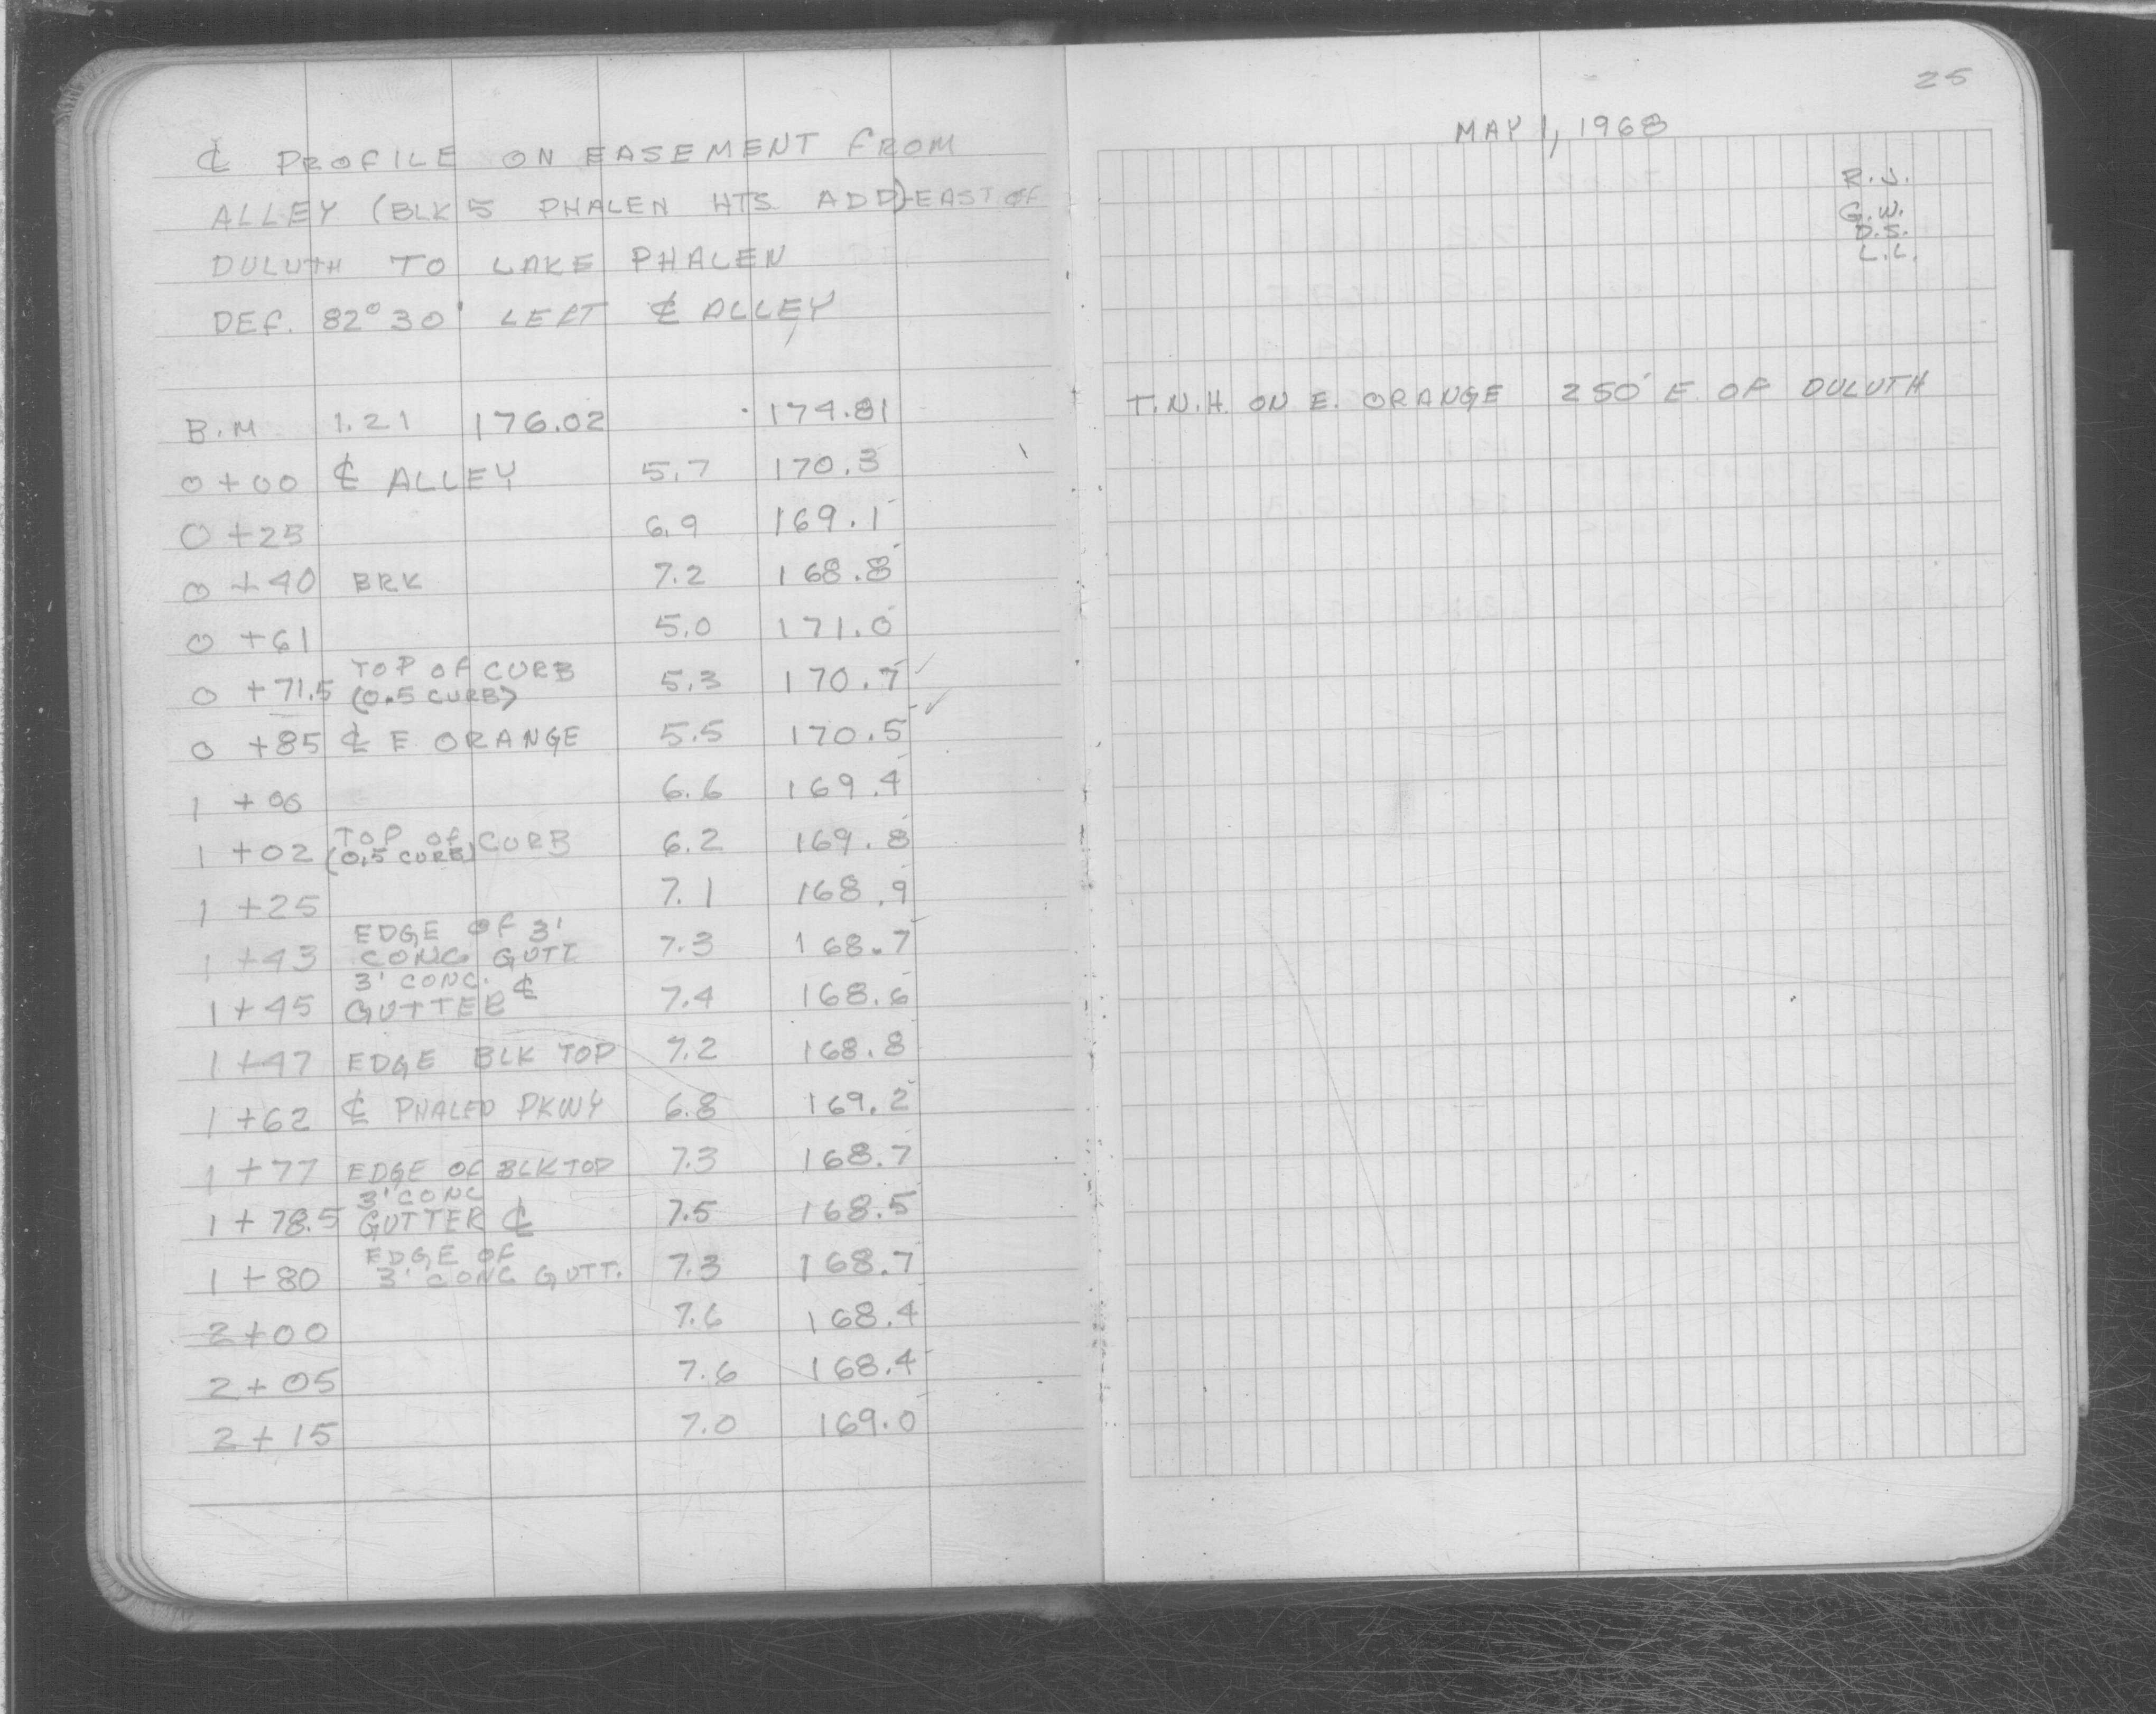 ℄ PROFILE ON EASEMENT FROM
ALLEY (BLK 5 PHALEN HTS ADD) EAST OF
DULUTH TO LAKE PHALEN
DEF. 82° 30' LEFT ℄ ALLEY
B.M 1.21 176.02 174.81
0+00 ℄ ALLEY 5.7 170.3
0+25 6.9 169.1
0+40 BRK 7.2 168.8
0+61 5.0 171.0
0+71.5 TOP OF CURB 5.3 170.7
(0.5 CURB)
0+85 ℄ E ORANGE 5.5 170.5
1+00 6.6 169.4
1+02 TOP OF CURB 6.2 169.8
(0.5 CURB)
1+25 7.1 168.9
EDGE OF 3'
1+43 CONC GUTT 7.3 168.7
3' CONC. ℄
1+45 GUTTER 7.4 168.6
1+47 EDGE BLK TOP 7.2 168.8
1+62 ℄ PHALEN PKWY 6.8 169.2
1+77 EDGE OF BLKTOP 7.3 168.7
3' CONC
1+78.5 GUTTER ℄ 7.5 168.5
EDGE OF
1+80 3' CONC GUTT. 7.3 168.7
2+00 7.6 168.4
2+05 7.6 168.4
2+15 7.0 169.0
25
MAY 1, 1968
R.J.
G.W.
D.S.
L.L.
T.N.H. ON E. ORANGE 250' E. OF DULUTH